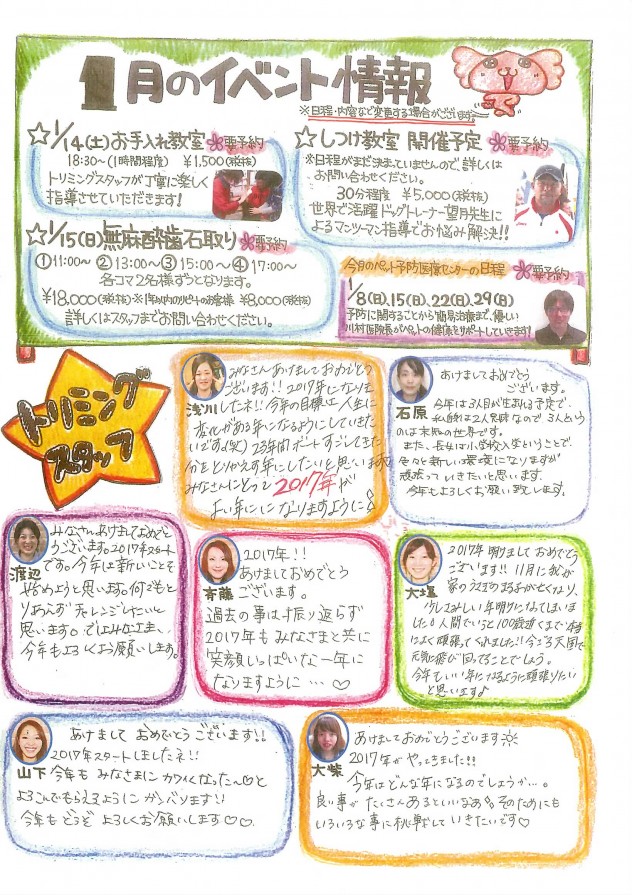 1月のイベント情報
※日程・内容など変更する場合がございます。
☆1/14(土)お手入れ教室 要予約
18:30～(1時間程度) ¥1,500(税抜)
トリミングスタッフが丁寧に楽しく
指導させていただきます!
☆1/15(日)無麻酔歯石取り 要予約
①11:00～ ②13:00～③15:00～④17:00～
各コマ2名様ずつとなります。
¥18,000(税抜)※1年以内のリピートのお客様 ¥8,000(税抜)
詳しくはスタッフまでお問い合わせください。
☆しつけ教室 開催予定 要予約
※日程がまだ決まっていませんので、詳しくは
お問い合わせください。
30分程度 ¥5,000(税抜)
世界で活躍ドッグトレーナー望月先生に
よるマンツーマン指導でお悩み解決!!
今月のペット予防医療センターの日程 要予約
1/8(日)、15(日)、22(日)、29(日)
予防に関することから簡易治療まで、優しい
川村医院長がペットの健康をサポートしていきます!
トリミング
スタッフ
浅川
みなさんあけましておめでとう
ございます!! 2017年になりま
したネ!! 今年の目標は人生に
変化がある年になるようにしていきた
いです。(笑) 23年間ボーとすごしてきた
分をとりかえす年にしたいと思います
みなさんにとって2017年が
よい年になりますように
石原
あけましておめでとう
ございます。
今年は3人目が生まれる予定で、
私自身は2人兄弟なので3人という
のは未知の世界です。
また、長女は小学校入学ということで
色々と新しい環境になりますが
頑張っていきたいと思います。
今年もよろしくお願い致します。
渡辺
みなさんあけましておめでと
うございます。2017年スタート
です。今年は新しいことを
始めようと思います。何でもと
りあえずチャレンジしたいと
思います。ではみなさま、
今年もよろしくよう願いします。
斉藤
2017年!!
あけましておめでとう
ございます。
過去の事は振り返らず
2017年もみなさまと共に
笑顔いっぱいな一年に
なりますように…♡
大塩
2017年 明けましておめでとうご
ざいます!! 11月に我が
家のうさぎのまる子が亡くなり、
少しさみしい年明けになってしまいま
した。人間でいうと100歳近くまで本当
によく頑張ってくれました!! 今ごろ天国で
元気に飛び回ってることでしょう。
今年もいい年になるように頑張りたい
と思います♪
山下
あけまして おめでとうございます!!
2017年スタートしましたネ!!
今年も みなさまに カワイくなった～♡と
よろこんでもらえるように ガンバります!!
今年もどうぞ よろしくお願いします♡♡
大柴
あけましておめでとうございます
2017年がやってきました!!
今年はどんな年になるのでしょうか…。
良い事がたくさんあるといいなあ そのためにも
いろいろな事に挑戦していきたいです♡